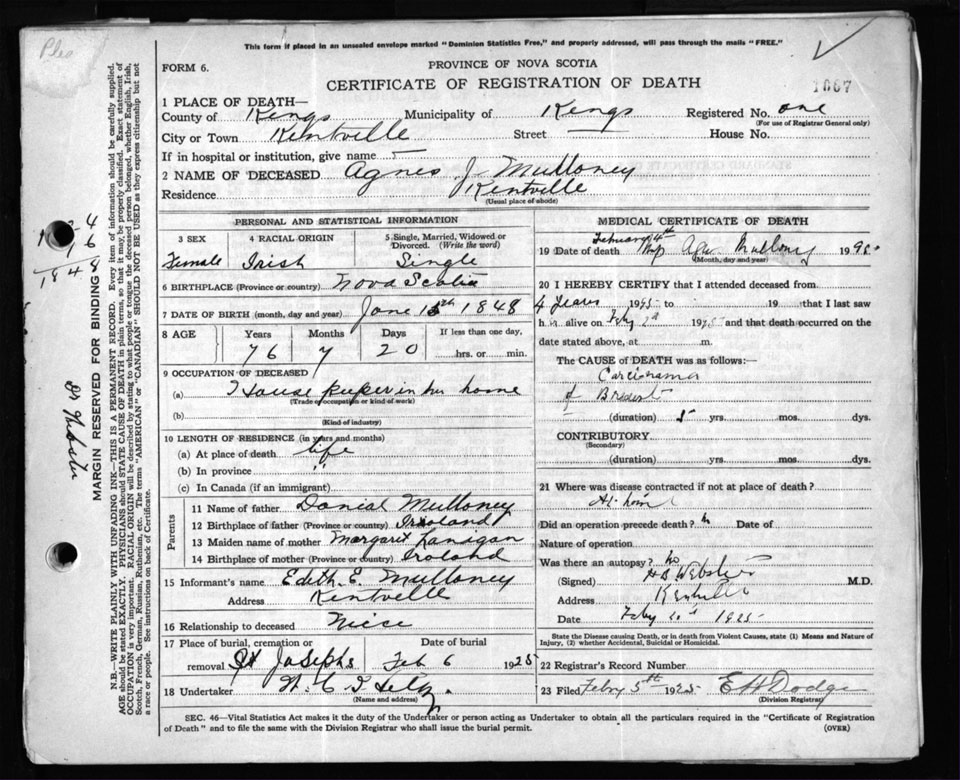 Plea
This form if placed in an unsealed envelope marked "Dominion Statistics Free," and properly addressed, will pass through the mails "FREE."
FORM 6.
PROVINCE OF NOVA SCOTIA
CERTIFICATE OF REGISTRATION OF DEATH
1667
1 PLACE OF DEATH—
County of Kings Municipality of Kings Registered No. one
(For use of Registrar General only)
City or Town Kentville Street — House No.
If in hospital or institution, give name
2 NAME OF DECEASED Agnes J Mulloney
Residence Kentville
(Usual place of abode)
PERSONAL AND STATISTICAL INFORMATION
3 SEX
Female
4 RACIAL ORIGIN
Irish
5 Single, Married, Widowed or
Divorced. (Write the word)
Single
6 BIRTHPLACE (Province or country) Nova Scotia
7 DATE OF BIRTH (month, day and year) June 15th 1848
8 AGE Years Months Days If less than one day,
76 7 20 hrs. or min.
9 OCCUPATION OF DECEASED
(a) House keeper in her home
(Trade of occupation or kind of work)
(b)
(Kind of industry)
10 LENGTH OF RESIDENCE (in years and months)
(a) At place of death life
(b) In province "
(c) In Canada (if an immigrant)
Parents
11 Name of father Danial Mulloney
12 Birthplace of father (Province or country) Iroland
13 Maiden name of mother Margaret Lanagan
14 Birthplace of mother (Province or country) Iroland
15 Informant's name Edith. E. Mulloney
Address Kentville
16 Relationship to deceased Niece
17 Place of burial, cremation or Date of burial
removal St Josephs Feb 6 1925
18 Undertaker W. C.
(Name and address)
MEDICAL CERTIFICATE OF DEATH
19 Date of death February 4th Mulloney 19
(Month, day and year)
20 I HEREBY CERTIFY that I attended deceased from
4 years 1925 to 19 that I last saw
h alive on Feby 2d 1925 and that death occurred on the
date stated above, at m.
The CAUSE of DEATH was as follows:
Carcinoma
of Breast
(duration) 5 yrs. mos. dys.
CONTRIBUTORY
(Secondary)
(duration) yrs. mos. dys.
21 Where was disease contracted if not at place of death?
At home
Did an operation precede death? Date of
Nature of operation
Was there an autopsy? No
(Signed) H B Webster M.D.
Address Kentville
Date Feby 1925
State the Disease causing Death, or in death from Violent Causes, state (1) Means and Nature of
Injury, (2) whether Accidental, Suicidal or Homicidal.
22 Registrar's Record Number
23 Filed Febry 5th 1925 E H Dodge
(Division Registrar)
SEC. 46—Vital Statistics Act makes it the duty of the Undertaker or person acting as Undertaker to obtain all the particulars required in the "Certificate of Registration
of Death" and to file the same with the Division Registrar who shall issue the burial permit. (OVER)
MARGIN RESERVED FOR BINDING
Dr Webster
N.B.—WRITE PLAINLY WITH UNFADING INK—THIS IS A PERMANENT RECORD. Every item of information should be carefully supplied.
AGE should be stated EXACTLY. PHYSICIANS should STATE CAUSE OF DEATH in plain terms, so that it may be properly classified. Exact statement of
OCCUPATION is very important. RACIAL ORIGIN will be described by stating to what people or tongue the deceased person belonged, whether English, Irish,
Scotch, French, German, Russian, Ruthenian, etc. The terms "AMERICAN" or "CANADIAN" SHOULD NOT BE USED as they express citizenship but not
a race or people. See instructions on back of Certificate.